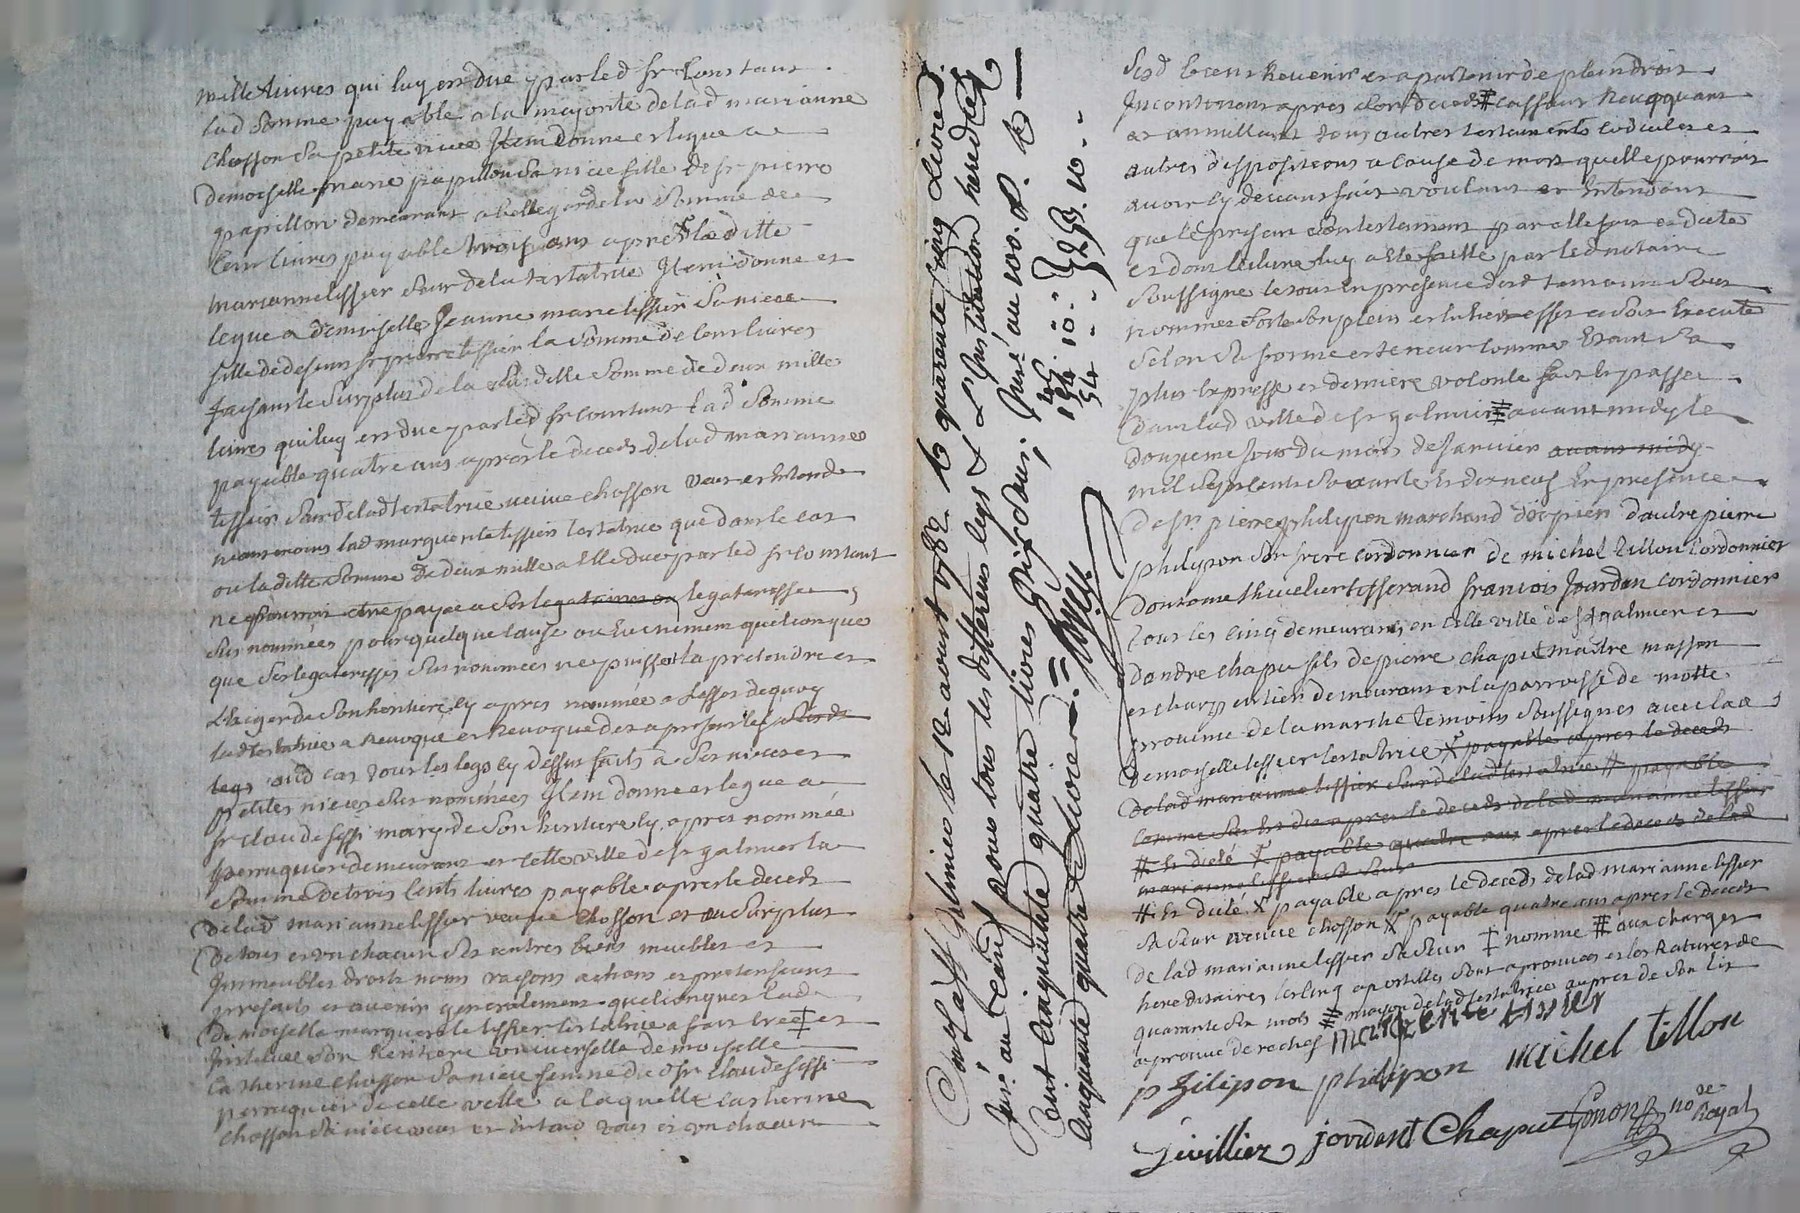 mille livres qui luy est due par led sr Constant
lad somme payable a la majorité de lad marianne
chosson sa petite niece Item donne et legue a
demoiselle marie papillon sa niece fille de sr pierre
papillon demeurant a bellegarde la somme de
cent livres payable trois ans apres laditte
marianne tissier sœur de la testatrice Item donne et
legue a demoiselle Jeanne marie tissier sa niece
fille de defunt sr pierre tissier la somme de cent livres
faisant le surplus de la susditte somme de deux mille
livres qui luy est due par led sr Constant lad somme
payable quatre ans apres le deceds de lad marianne
tissier sœur de lad testatrice veuve chosson veut et entend
neanmoins lad marguerite tissier testatrice que dans le cas
ou laditte somme de deux mille a elle due par led sr Constant
ne pourroit etre payée a ses legataires ou legateresses
sus nommées pour quelque cause ou evenement quelconque
que ses legateresses sus nommées ne puissent la pretendre et
Exiger de son heritiere cy apres nommée a l'effet de quoy
lad testatrice a revoqué et revoque des a present les
legs aud cas tous les legs cy dessus faits a ses nieces et
petites nieces sus nommées Item donne et legue a
sr claude sessi mary de son heritiere cy apres nommée
perruquier demeurant en cette ville de st galmier la
somme de trois cents livres payable apres le deceds
de lad marianne tissier veuve chosson et au surplus
de tous et un chacun ses autres biens meubles et
Immeubles droits noms raisons actions et pretensions
presents et avenir generalement quelconques lad
demoiselle marguerite tissier testatrice a fait creé ‡ et
Institué son heritiere universelle demoiselle
Catherine chosson sa niece femme dud sr claude sessi
perruquier de cette ville a laquelle catherine
chosson sa niece veut et entend tous et un chacun
Con. a st Galmier le 12 aout 1782. R. quarente cinq livres
pour tous les differens legs & L'Institution heredit
cent cinquante quatre livres dix sous;
cinquante quatre livre
154. 10.
54
sesd biens revenir et apartenir de plein droit
Incontinent apres son deceds # cassant revoquant
et annullant tous autres testaments codicules et
autres dispositions a cause de mort quelle pourroit
avoir cy devant fait voulant et entendant
que le present son testament par elle fait et dicté
et dont lecture luy a eté faitte par led notaire
soussigné le tout en presence desd temoins sous
nommez sorte son plein et entier effet et soit executé
selon sa forme et teneur comme etant sa
plus expresse et derniere volonté fait et passé
dans lad ville de st galmier # avant midy le
douzieme jour du mois de janvier avant midy
mil sept cents soixante et dix neuf En presence
de sr pierre philypon marchand dautre pierre
philypon son frere cordonnier de michel tillou cordonnier
dantoine thevelier tisserand francois Jourdan cordonnier
tous les cinq demeurants en cette ville de st galmier et
dandre chaput fils de pierre chaput maitre masson
et charpentier demeurant en la parroisse de motte
province de la marche temoins soussignes avec lad
demoiselle tissier testatrice ⚹ payable apres le deceds
de lad marianne tissier sœur de lad testatrice # payable
comme sus est dit apres le deceds de lad marianne tissier
# et dicté ⚹ payable quatre ans apres le deceds de lad
marianne tissier sa sœur
# et dicté ⚹ payable apres le deceds de lad marianne tissier
sa sœur veuve chosson ⚹ payable quatre ans apres le deceds
de lad marianne tissier sa sœur ‡ nommé # aux charges
hereditaires les cinq apostilles sont aprouvées et les ratures de
quarante six mots ## maison de lad testatrice aupres de son lit
aprouvé de rechef marguerite tissier
philipon philipon michel tillou
jourdant Chaput nore Royal